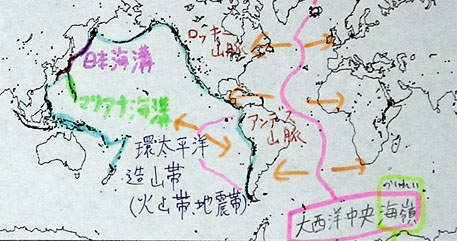 ロッキー
山脈
日本海溝
マリアナ海溝
アンデス
山脈
環太平洋
造山帯
(火山帯、地震帯)
かいれい
大西洋中央海嶺